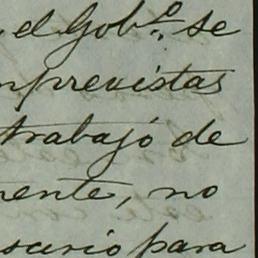 , el Gobº. se
mprevistas
trabajó de
mente, no
sario para